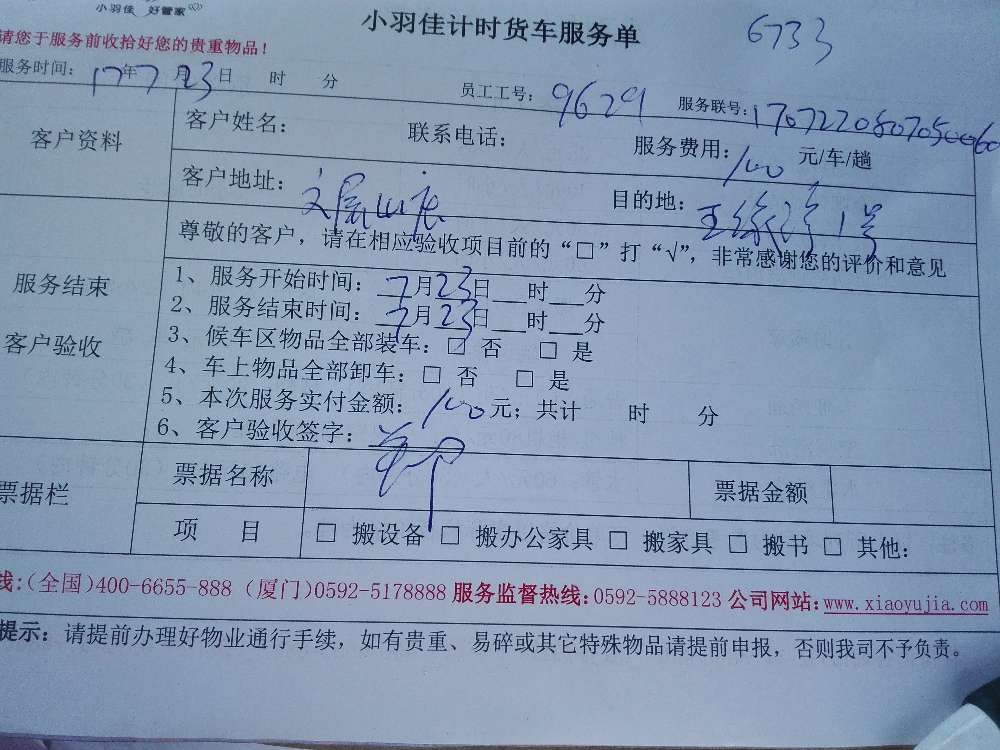 小羽佳 好管家
小羽佳计时货车服务单 6733
请您于服务前收拾好您的贵重物品！
服务时间：17年7月23日 时 分 员工工号：9629 服务联号：
客户资料 客户姓名： 联系电话： 服务费用：100 元/车/趟
客户地址： 目的地： 1号
尊敬的客户，请在相应验收项目前的“□”打“√”，非常感谢您的评价和意见
服务结束
客户验收
1、服务开始时间：7月23日___时___分
2、服务结束时间：7月23日___时___分
3、候车区物品全部装车：□ 否 □ 是
4、车上物品全部卸车：□ 否 □ 是
5、本次服务实付金额：100元；共计 时 分
6、客户验收签字：
票据栏 票据名称 票据金额
项 目 □ 搬设备 □ 搬办公家具 □ 搬家具 □ 搬书 □ 其他：
线：(全国)400-6655-888 (厦门)0592-5178888 服务监督热线：0592-5888123 公司网站：www.xiaoyujia.com
提示：请提前办理好物业通行手续，如有贵重、易碎或其它特殊物品请提前申报，否则我司不予负责。